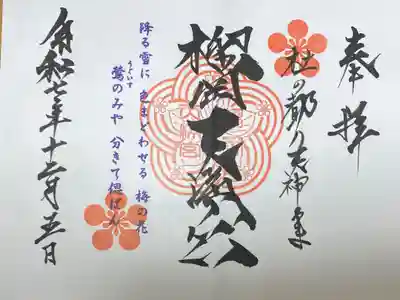 奉拝
杜の都の天神さま
榴岡天満宮
降る雪に 色まどわせる 梅の花
鶯のみや 分きて偲ばん
うぐいす
令和七年十二月五日